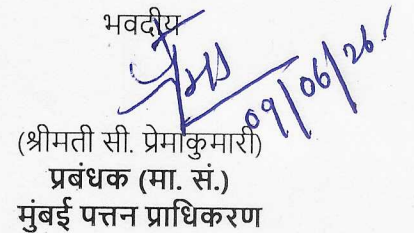 भवदीय
09/06/26
(श्रीमती सी. प्रेमाकुमारी)
प्रबंधक (मा. सं.)
मुंबई पत्तन प्राधिकरण